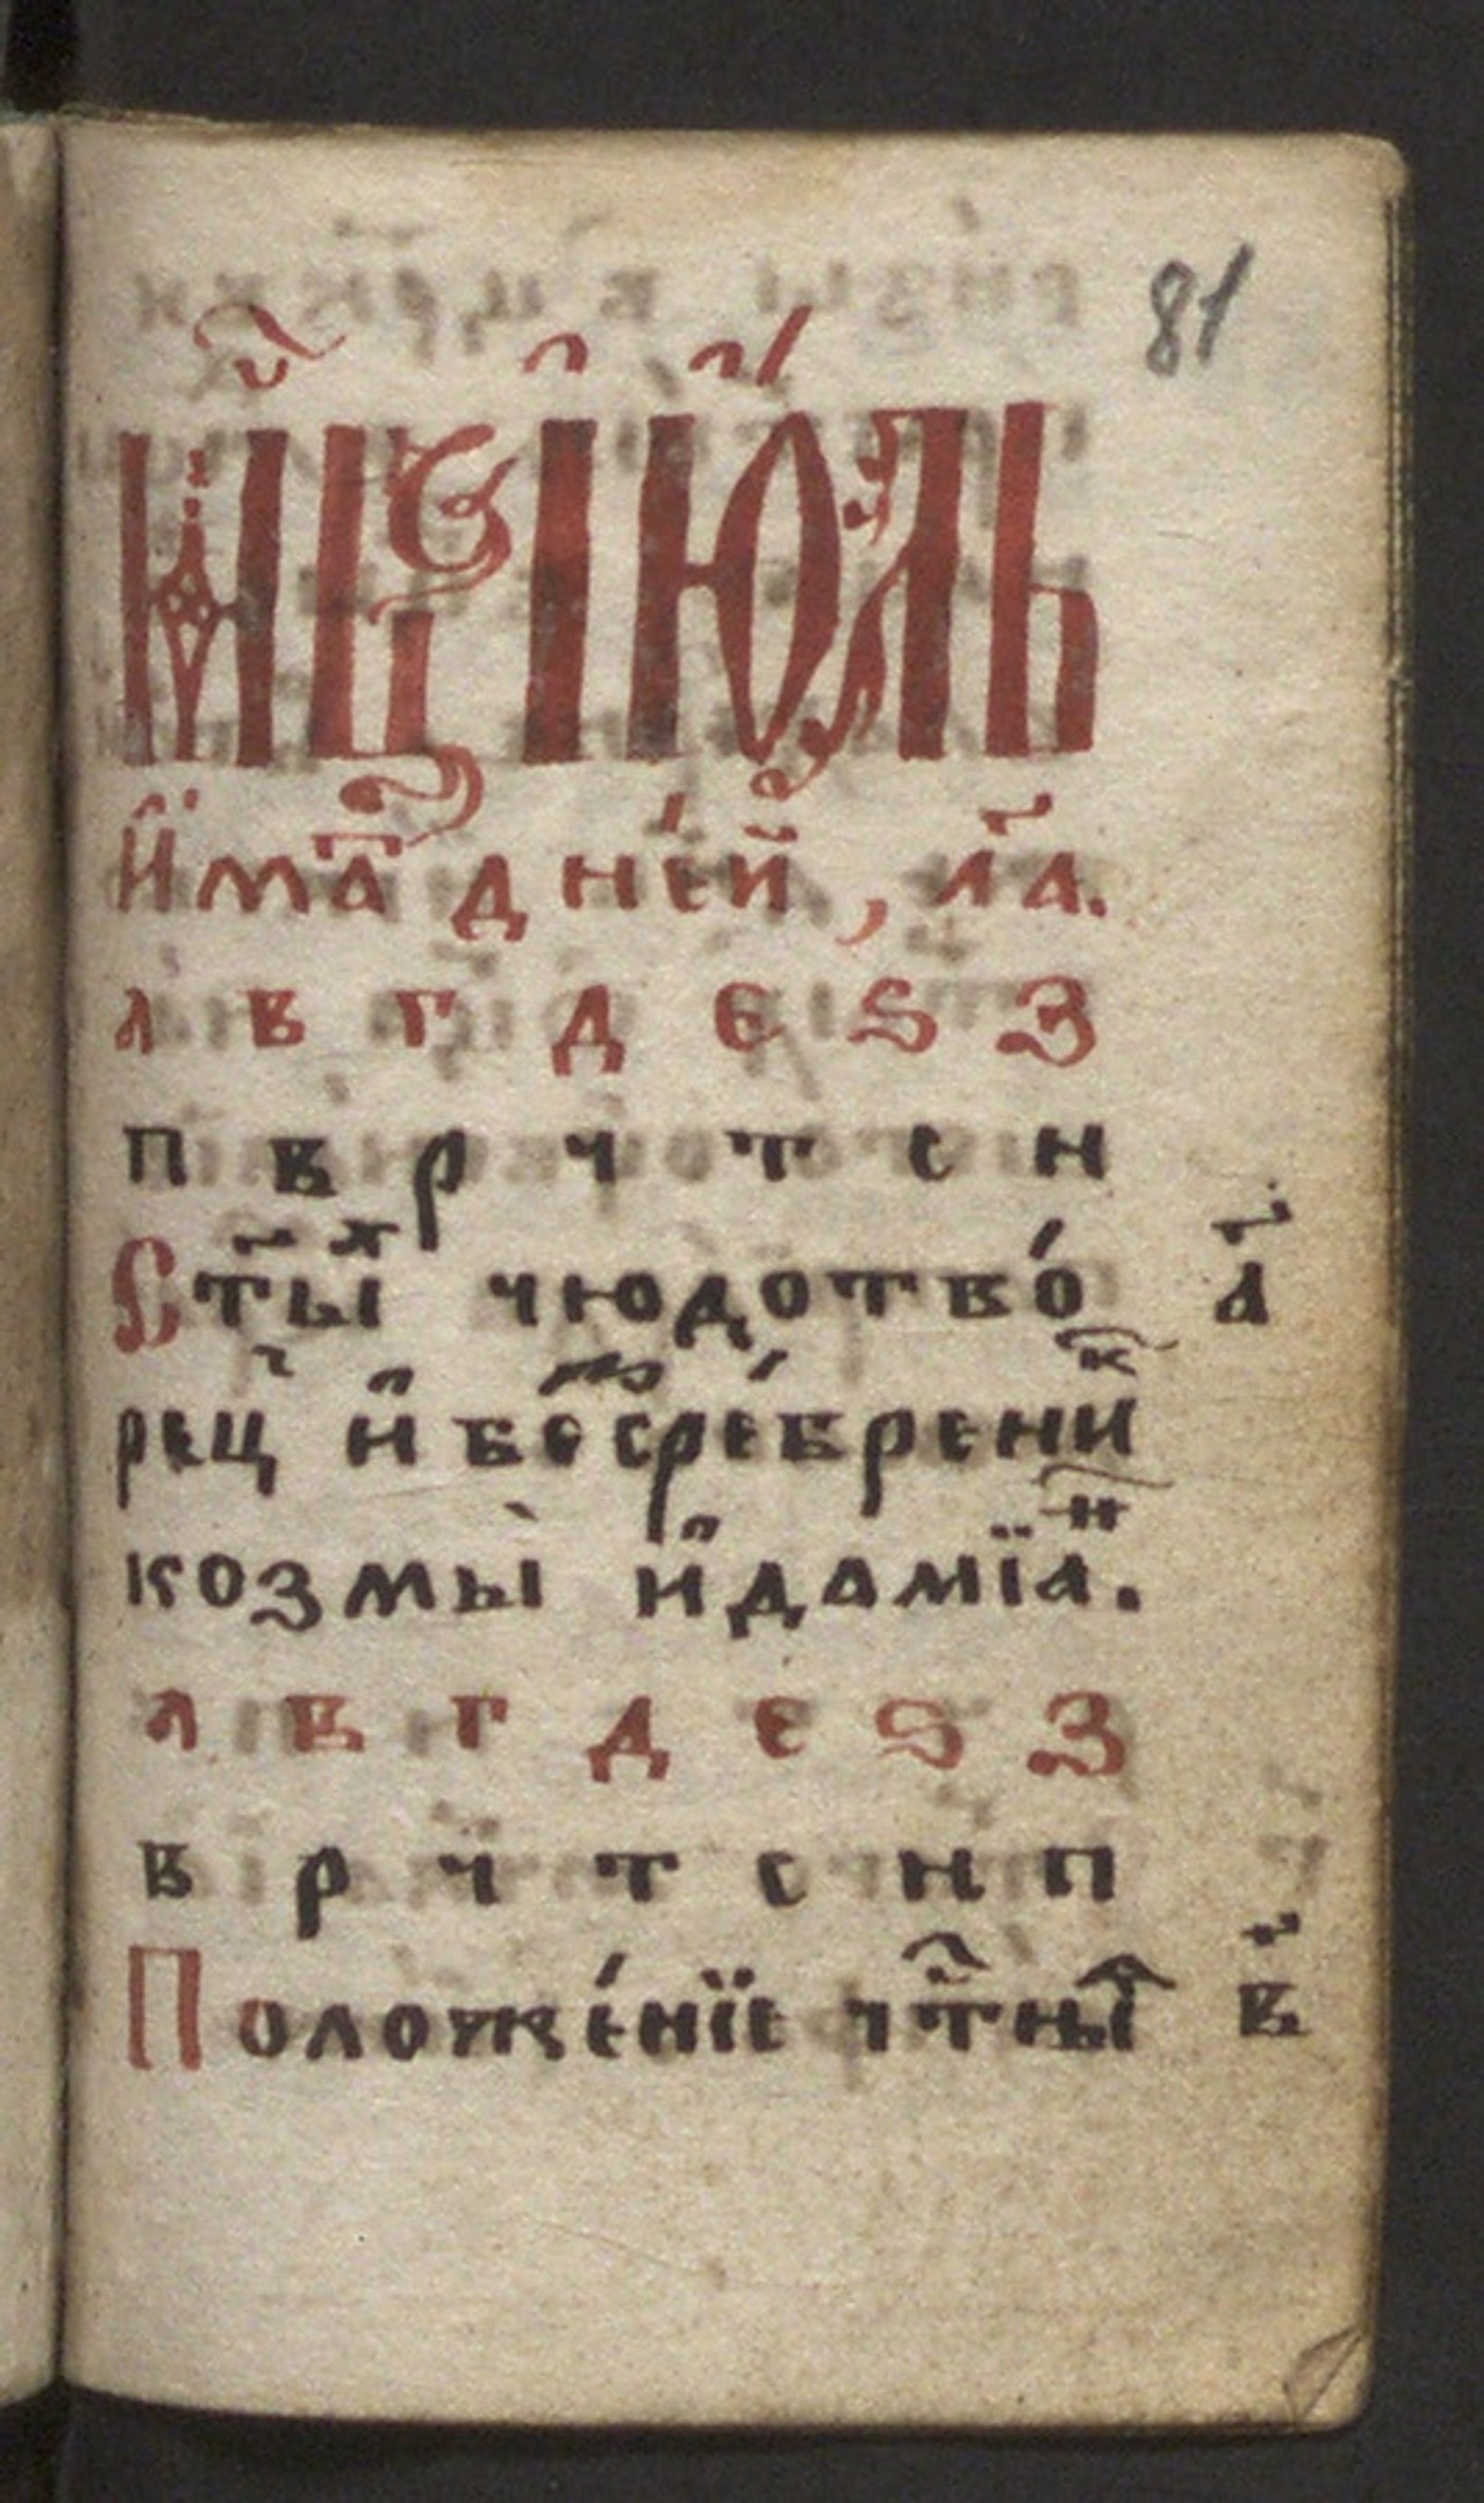 81
Мцⷭ҇ъ І҆ю́ль
И҆ма́ть дне́й, л҃а.
а в г д є ѕ з
п в р ч т с н
Ст҃ыⷯ чюдотво́ а҃
рецъ и҆ бесре́брениⷦ҇
козмы̀ и҆ дамїаⷩ҇.
а в г д е ѕ з
в р ч т с н п
Положе́нїе чⷭ҇тныѧ в҃